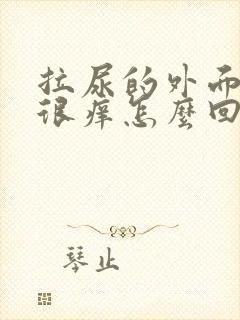 拉尿的外面
很痒怎麽回
琴止